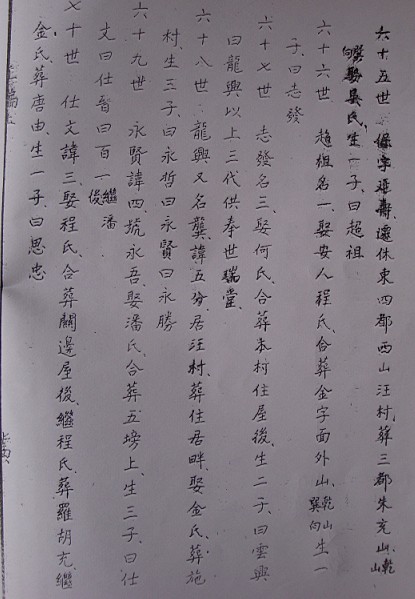 六十五世 保字延壽遷休東四都西山汪村、葬三都朱充山、乾山
巽向娶吳氏、生一子曰超祖
六十六世 超祖名一、娶安人程氏、合葬金字面外山、乾山巽向生一
子、曰志發
六十七世 志發名三、娶何氏、合葬本村住屋後、生二子、曰雲興
曰龍興以上三代供奉世瑞堂、
六十八世 龍興又名龔、諱五分居汪村、葬住居畔、娶金氏、葬施
村、生三子、曰永哲曰永賢曰永勝
六十九世 永賢諱四、號永吾娶潘氏、合葬五塝上、生三子、曰仕
文曰仕智曰百一繼潘後
七十世 仕文諱三、娶程氏、合葬關邊屋後、繼程氏、葬羅胡充、繼
金氏、葬唐由、生一子、曰思忠